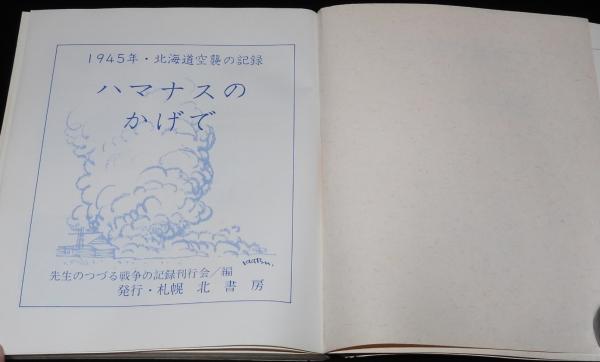 1945年・北海道空襲の記録
ハマナスの
かげで
先生のつづる戦争の記録刊行会/編
発行・札幌 北書房